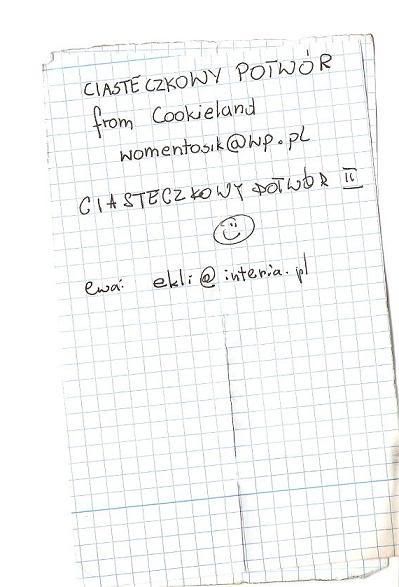 CIASTECZKOWY POTWÓR
from Cookieland
womentosik@wp.pl
CIASTECZKOWY POTWÓR II
ewa: ekli@interia.pl